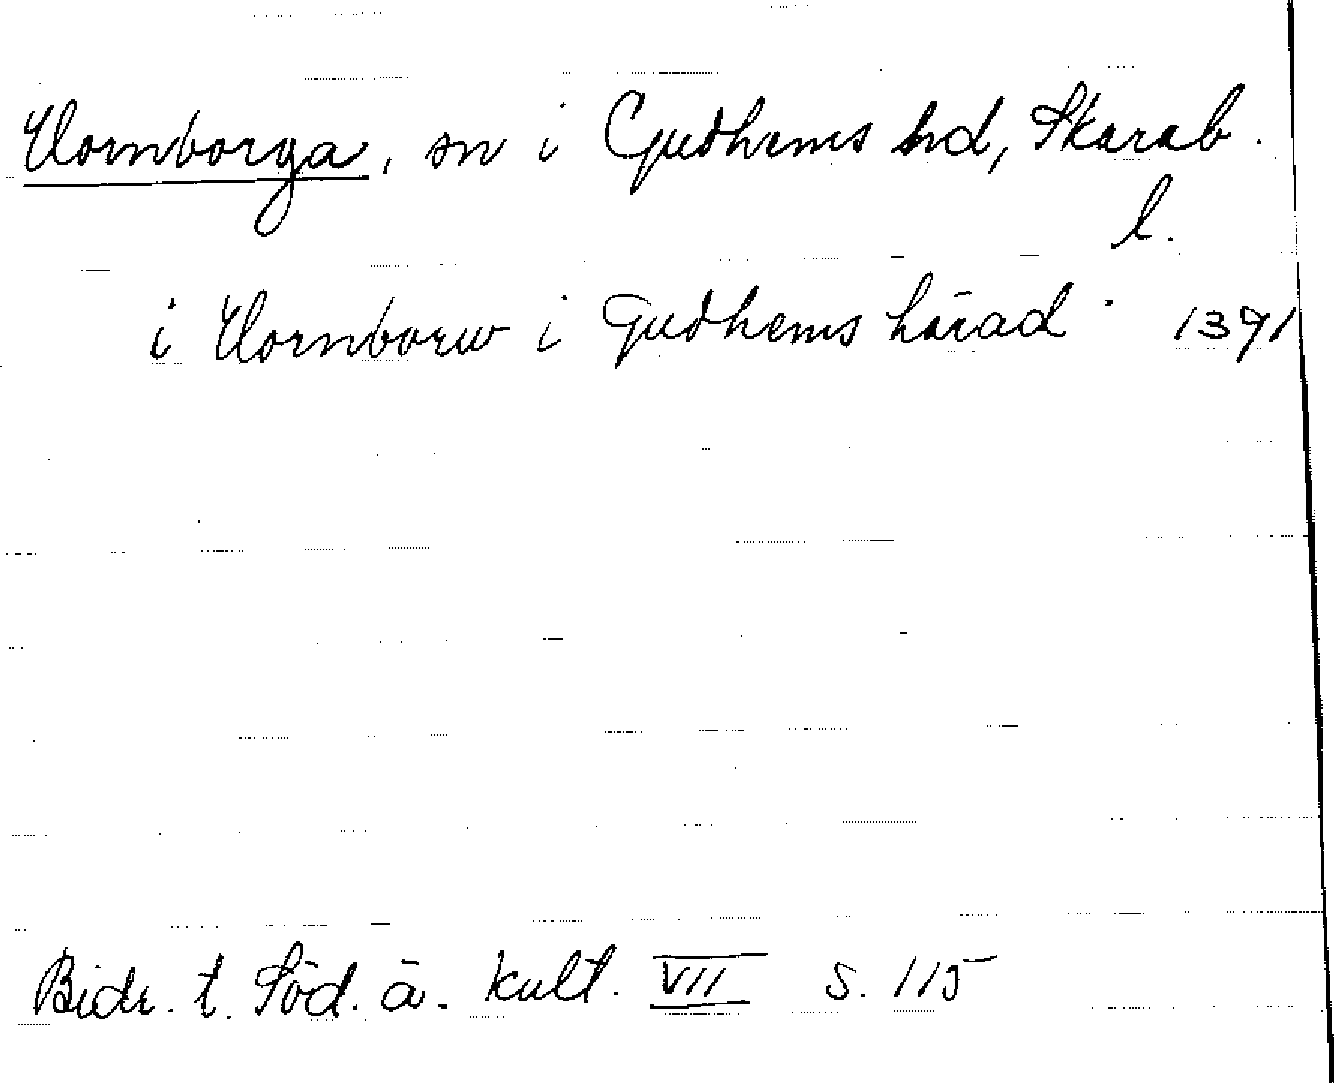 Hornborga, sn i Gudhems hd, Skarab.
l.
i Hornborw i Gudhems härad 1391
Bidr. t. Söd. ä. kult. VII s. 115